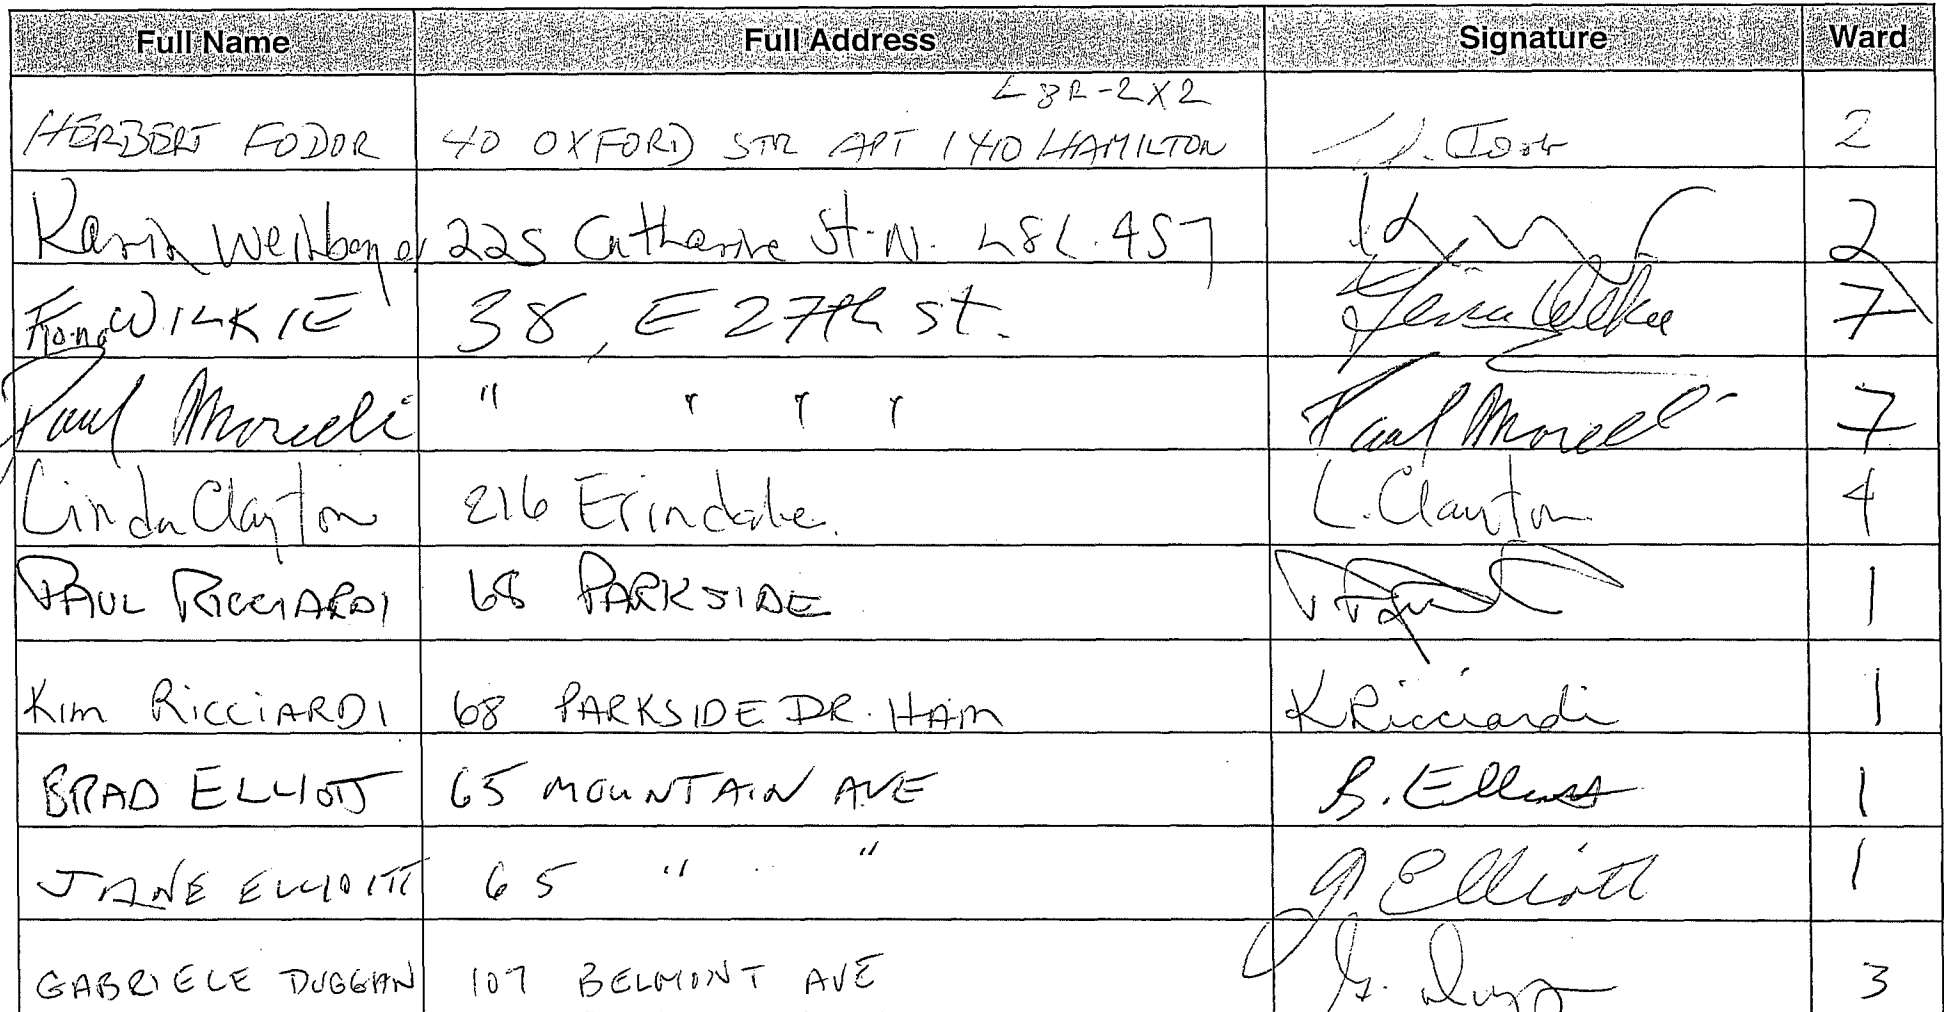 Full Name Full Address Signature Ward
L8R-2X2
HERBERT FODOR 40 OXFORD STR APT 1410 HAMILTON 2
Karin 225 Catharine St. N. L8L.4S7 2
Fiona WILKIE 38, E 27th st. Fiona Wilkie 7
Paul Morelli " " " " Paul Morelli 7
Linda Clayton 216 Erindale. L. Clayton 4
PAUL RICCIARDI 68 PARKSIDE 1
Kim RICCIARDI 68 PARKSIDE DR. HAM K Ricciardi 1
BRAD ELLIOTT 65 MOUNTAIN AVE B. Elliott 1
JANE ELLIOTT 65 " " J Elliott 1
GABRIELE DUGGAN 107 BELMONT AVE G. Duggan 3